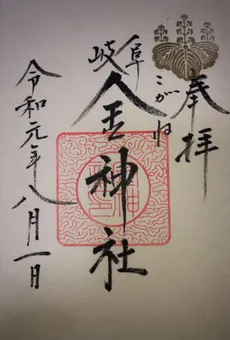 奉拝
こがね
岐阜
金王神社
令和元年八月一日